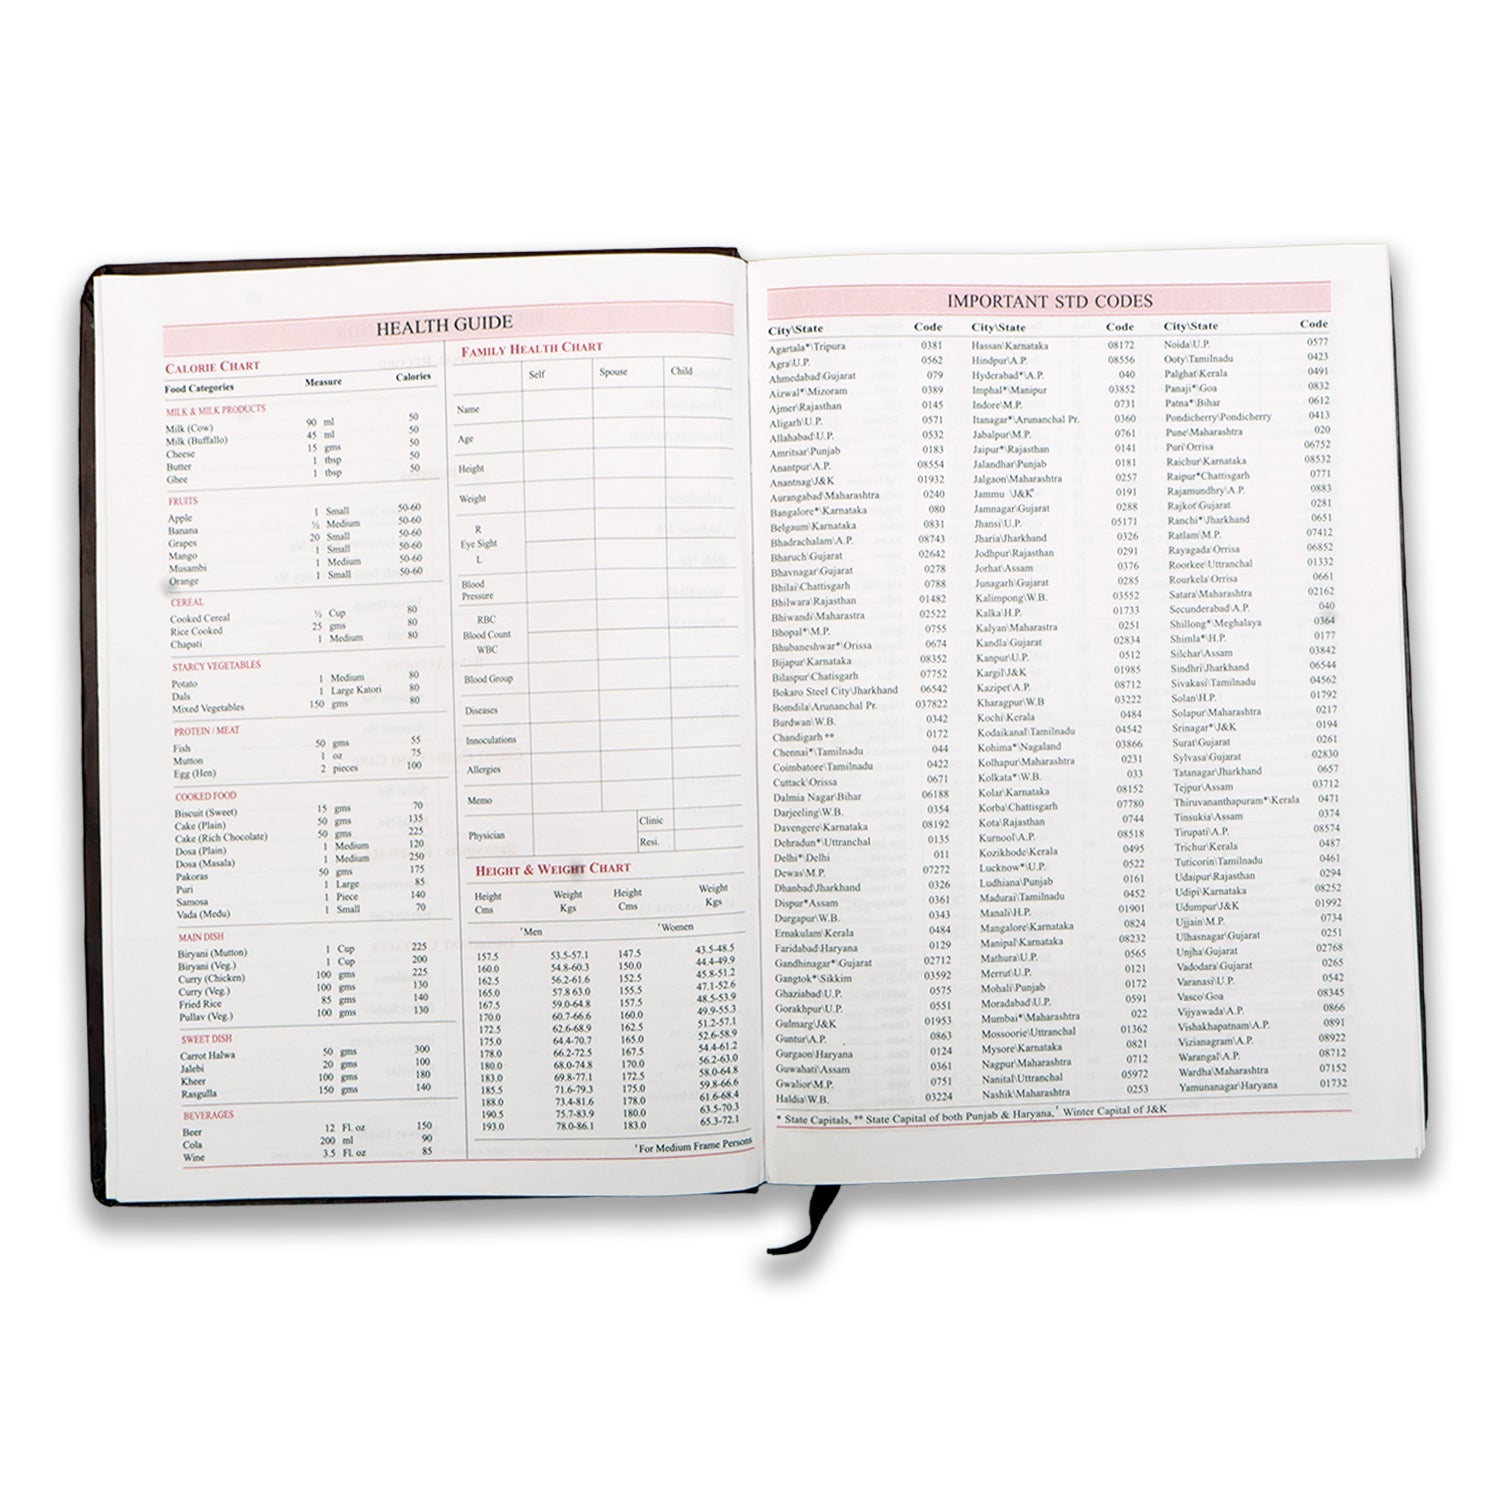 HEALTH GUIDE
CALORIE CHART
Food Categories Measure Calories
MILK & MILK PRODUCTS
Milk (Cow) 90 ml 50
Milk (Buffallo) 45 ml 50
Cheese 15 gms 50
Butter 1 tbsp 50
Ghee 1 tbsp 50
FRUITS
Apple 1 Small 50-60
Banana ½ Medium 50-60
Grapes 20 Small 50-60
Mango 1 Small 50-60
Musambi 1 Medium 50-60
Orange 1 Small 50-60
CEREAL
Cooked Cereal ½ Cup 80
Rice Cooked 25 gms 80
Chapati 1 Medium 80
STARCY VEGETABLES
Potato 1 Medium 80
Dals 1 Large Katori 80
Mixed Vegetables 150 gms 80
PROTEIN / MEAT
Fish 50 gms 55
Mutton 1 oz 75
Egg (Hen) 2 pieces 100
COOKED FOOD
Biscuit (Sweet) 15 gms 70
Cake (Plain) 50 gms 135
Cake (Rich Chocolate) 50 gms 225
Dosa (Plain) 1 Medium 120
Dosa (Masala) 1 Medium 250
Pakoras 50 gms 175
Puri 1 Large 85
Samosa 1 Piece 140
Vada (Medu) 1 Small 70
MAIN DISH
Biryani (Mutton) 1 Cup 225
Biryani (Veg.) 1 Cup 200
Curry (Chicken) 100 gms 225
Curry (Veg.) 100 gms 130
Fried Rice 85 gms 140
Pullav (Veg.) 100 gms 130
SWEET DISH
Carrot Halwa 50 gms 300
Jalebi 20 gms 100
Kheer 100 gms 180
Rasgulla 150 gms 140
BEVERAGES
Beer 12 Fl. oz 150
Cola 200 ml 90
Wine 3.5 Fl. oz 85
FAMILY HEALTH CHART
Self Spouse Child
Name
Age
Height
Weight
R
Eye Sight
L
Blood
Pressure
RBC
Blood Count
WBC
Blood Group
Diseases
Innoculations
Allergies
Memo
Physician Clinic
Resi.
HEIGHT & WEIGHT CHART
Height Weight Height Weight
Cms Kgs Cms Kgs
'Men 'Women
157.5 53.5-57.1 147.5 43.5-48.5
160.0 54.8-60.3 150.0 44.4-49.9
162.5 56.2-61.6 152.5 45.8-51.2
165.0 57.8 63.0 155.5 47.1-52.6
167.5 59.0-64.8 157.5 48.5-53.9
170.0 60.7-66.6 160.0 49.9-55.3
172.5 62.6-68.9 162.5 51.2-57.1
175.0 64.4-70.7 165.0 52.6-58.9
178.0 66.2-72.5 167.5 54.4-61.2
180.0 68.0-74.8 170.0 56.2-63.0
183.0 69.8-77.1 172.5 58.0-64.8
185.5 71.6-79.3 175.0 59.8-66.6
188.0 73.4-81.6 178.0 61.6-68.4
190.5 75.7-83.9 180.0 63.5-70.3
193.0 78.0-86.1 183.0 65.3-72.1
'For Medium Frame Persons
IMPORTANT STD CODES
City\State Code City\State Code City\State Code
Agartala*\Tripura 0381 Hassan\Karnataka 08172 Noida\U.P. 0577
Agra\U.P. 0562 Hindpur\A.P. 08556 Ooty\Tamilnadu 0423
Ahmedabad\Gujarat 079 Hyderabad*\A.P. 040 Palghat\Kerala 0491
Aizwal*\Mizoram 0389 Imphal*\Manipur 03852 Panaji*\Goa 0832
Ajmer\Rajasthan 0145 Indore\M.P. 0731 Patna*\Bihar 0612
Aligarh\U.P. 0571 Itanagar*\Arunanchal Pr. 0360 Pondicherry\Pondicherry 0413
Allahabad\U.P. 0532 Jabalpur\M.P. 0761 Pune\Maharashtra 020
Amritsar\Punjab 0183 Jaipur*\Rajasthan 0141 Puri\Orrisa 06752
Anantpur\A.P. 08554 Jalandhar\Punjab 0181 Raichur\Karnataka 08532
Anantnag\J&K 01932 Jalgaon\Maharashtra 0257 Raipur*\Chattisgarh 0771
Aurangabad\Maharashtra 0240 Jammu \J&K' 0191 Rajamundhry\A.P. 0883
Bangalore*\Karnataka 080 Jamnagar\Gujarat 0288 Rajkot\Gujarat 0281
Belgaum\Karnataka 0831 Jhansi\U.P. 05171 Ranchi*\Jharkhand 0651
Bhadrachalam\A.P. 08743 Jharia\Jharkhand 0326 Ratlam\M.P. 07412
Bharuch\Gujarat 02642 Jodhpur\Rajasthan 0291 Rayagada\Orrisa 06852
Bhavnagar\Gujarat 0278 Jorhat\Assam 0376 Roorkee\Uttranchal 01332
Bhilai\Chattisgarh 0788 Junagarh\Gujarat 0285 Rourkela\Orissa 0661
Bhilwara\Rajasthan 01482 Kalimpong\W.B. 03552 Satara\Maharashtra 02162
Bhiwandi\Maharastra 02522 Kalka\H.P. 01733 Secunderabad\A.P. 040
Bhopal*\M.P. 0755 Kalyan\Maharastra 0251 Shillong*\Meghalaya 0364
Bhubaneshwar*\Orissa 0674 Kandla\Gujarat 02834 Shimla*\H.P. 0177
Bijapur\Karnataka 08352 Kanpur\U.P. 0512 Silchar\Assam 03842
Bilaspur\Chatisgarh 07752 Kargil\J&K 01985 Sindhri\Jharkhand 06544
Bokaro Steel City\Jharkhand 06542 Kazipet\A.P. 08712 Sivakasi\Tamilnadu 04562
Bomdila\Arunanchal Pr. 037822 Kharagpur\W.B 03222 Solan\H.P. 01792
Burdwan\W.B. 0342 Kochi\Kerala 0484 Solapur\Maharashtra 0217
Chandigarh ** 0172 Kodaikanal\Tamilnadu 04542 Srinagar*\J&K 0194
Chennai*\Tamilnadu 044 Kohima*\Nagaland 03866 Surat\Gujarat 0261
Coimbatore\Tamilnadu 0422 Kolhapur\Maharashtra 0231 Sylvasa\Gujarat 02830
Cuttack\Orissa 0671 Kolkata*\W.B. 033 Tatanagar\Jharkhand 0657
Dalmia Nagar\Bihar 06188 Kolar\Karnataka 08152 Tejpur\Assam 03712
Darjeeling\W.B. 0354 Korba\Chattisgarh 07780 Thiruvananthapuram*\Kerala 0471
Davengere\Karnataka 08192 Kota\Rajasthan 0744 Tinsukia\Assam 0374
Dehradun*\Uttranchal 0135 Kurnool\A.P. 08518 Tirupati\A.P. 08574
Delhi*\Delhi 011 Kozikhode\Kerala 0495 Trichur\Kerala 0487
Dewas\M.P. 07272 Lucknow*\U.P. 0522 Tuticorin\Tamilnadu 0461
Dhanbad\Jharkhand 0326 Ludhiana\Punjab 0161 Udaipur\Rajasthan 0294
Dispur*\Assam 0361 Madurai\Tamilnadu 0452 Udipi\Karnataka 08252
Durgapur\W.B. 0343 Manali\H.P. 01901 Udumpur\J&K 01992
Ernakulam\Kerala 0484 Mangalore\Karnataka 0824 Ujjain\M.P. 0734
Faridabad\Haryana 0129 Manipal\Karnataka 08232 Ulhasnagar\Gujarat 0251
Gandhinagar*\Gujarat 02712 Mathura\U.P. 0565 Unjha\Gujarat 02768
Gangtok*\Sikkim 03592 Merrut\U.P. 0121 Vadodara\Gujarat 0265
Ghaziabad\U.P. 0575 Mohali\Punjab 0172 Varanasi\U.P. 0542
Gorakhpur\U.P. 0551 Moradabad\U.P. 0591 Vasco\Goa 08345
Gulmarg\J&K 01953 Mumbai*\Maharashtra 022 Vijyawada\A.P. 0866
Guntur\A.P. 0863 Mossoorie\Uttranchal 01362 Vishakhapatnam\A.P. 0891
Gurgaon\Haryana 0124 Mysore\Karnataka 0821 Vizianagram\A.P. 08922
Guwahati\Assam 0361 Nagpur\Maharashtra 0712 Warangal\A.P. 08712
Gwalior\M.P. 0751 Nanital\Uttranchal 05972 Wardha\Maharashtra 07152
Haldia\W.B. 03224 Nashik\Maharashtra 0253 Yamunanagar\Haryana 01732
* State Capitals, ** State Capital of both Punjab & Haryana,' Winter Capital of J&K